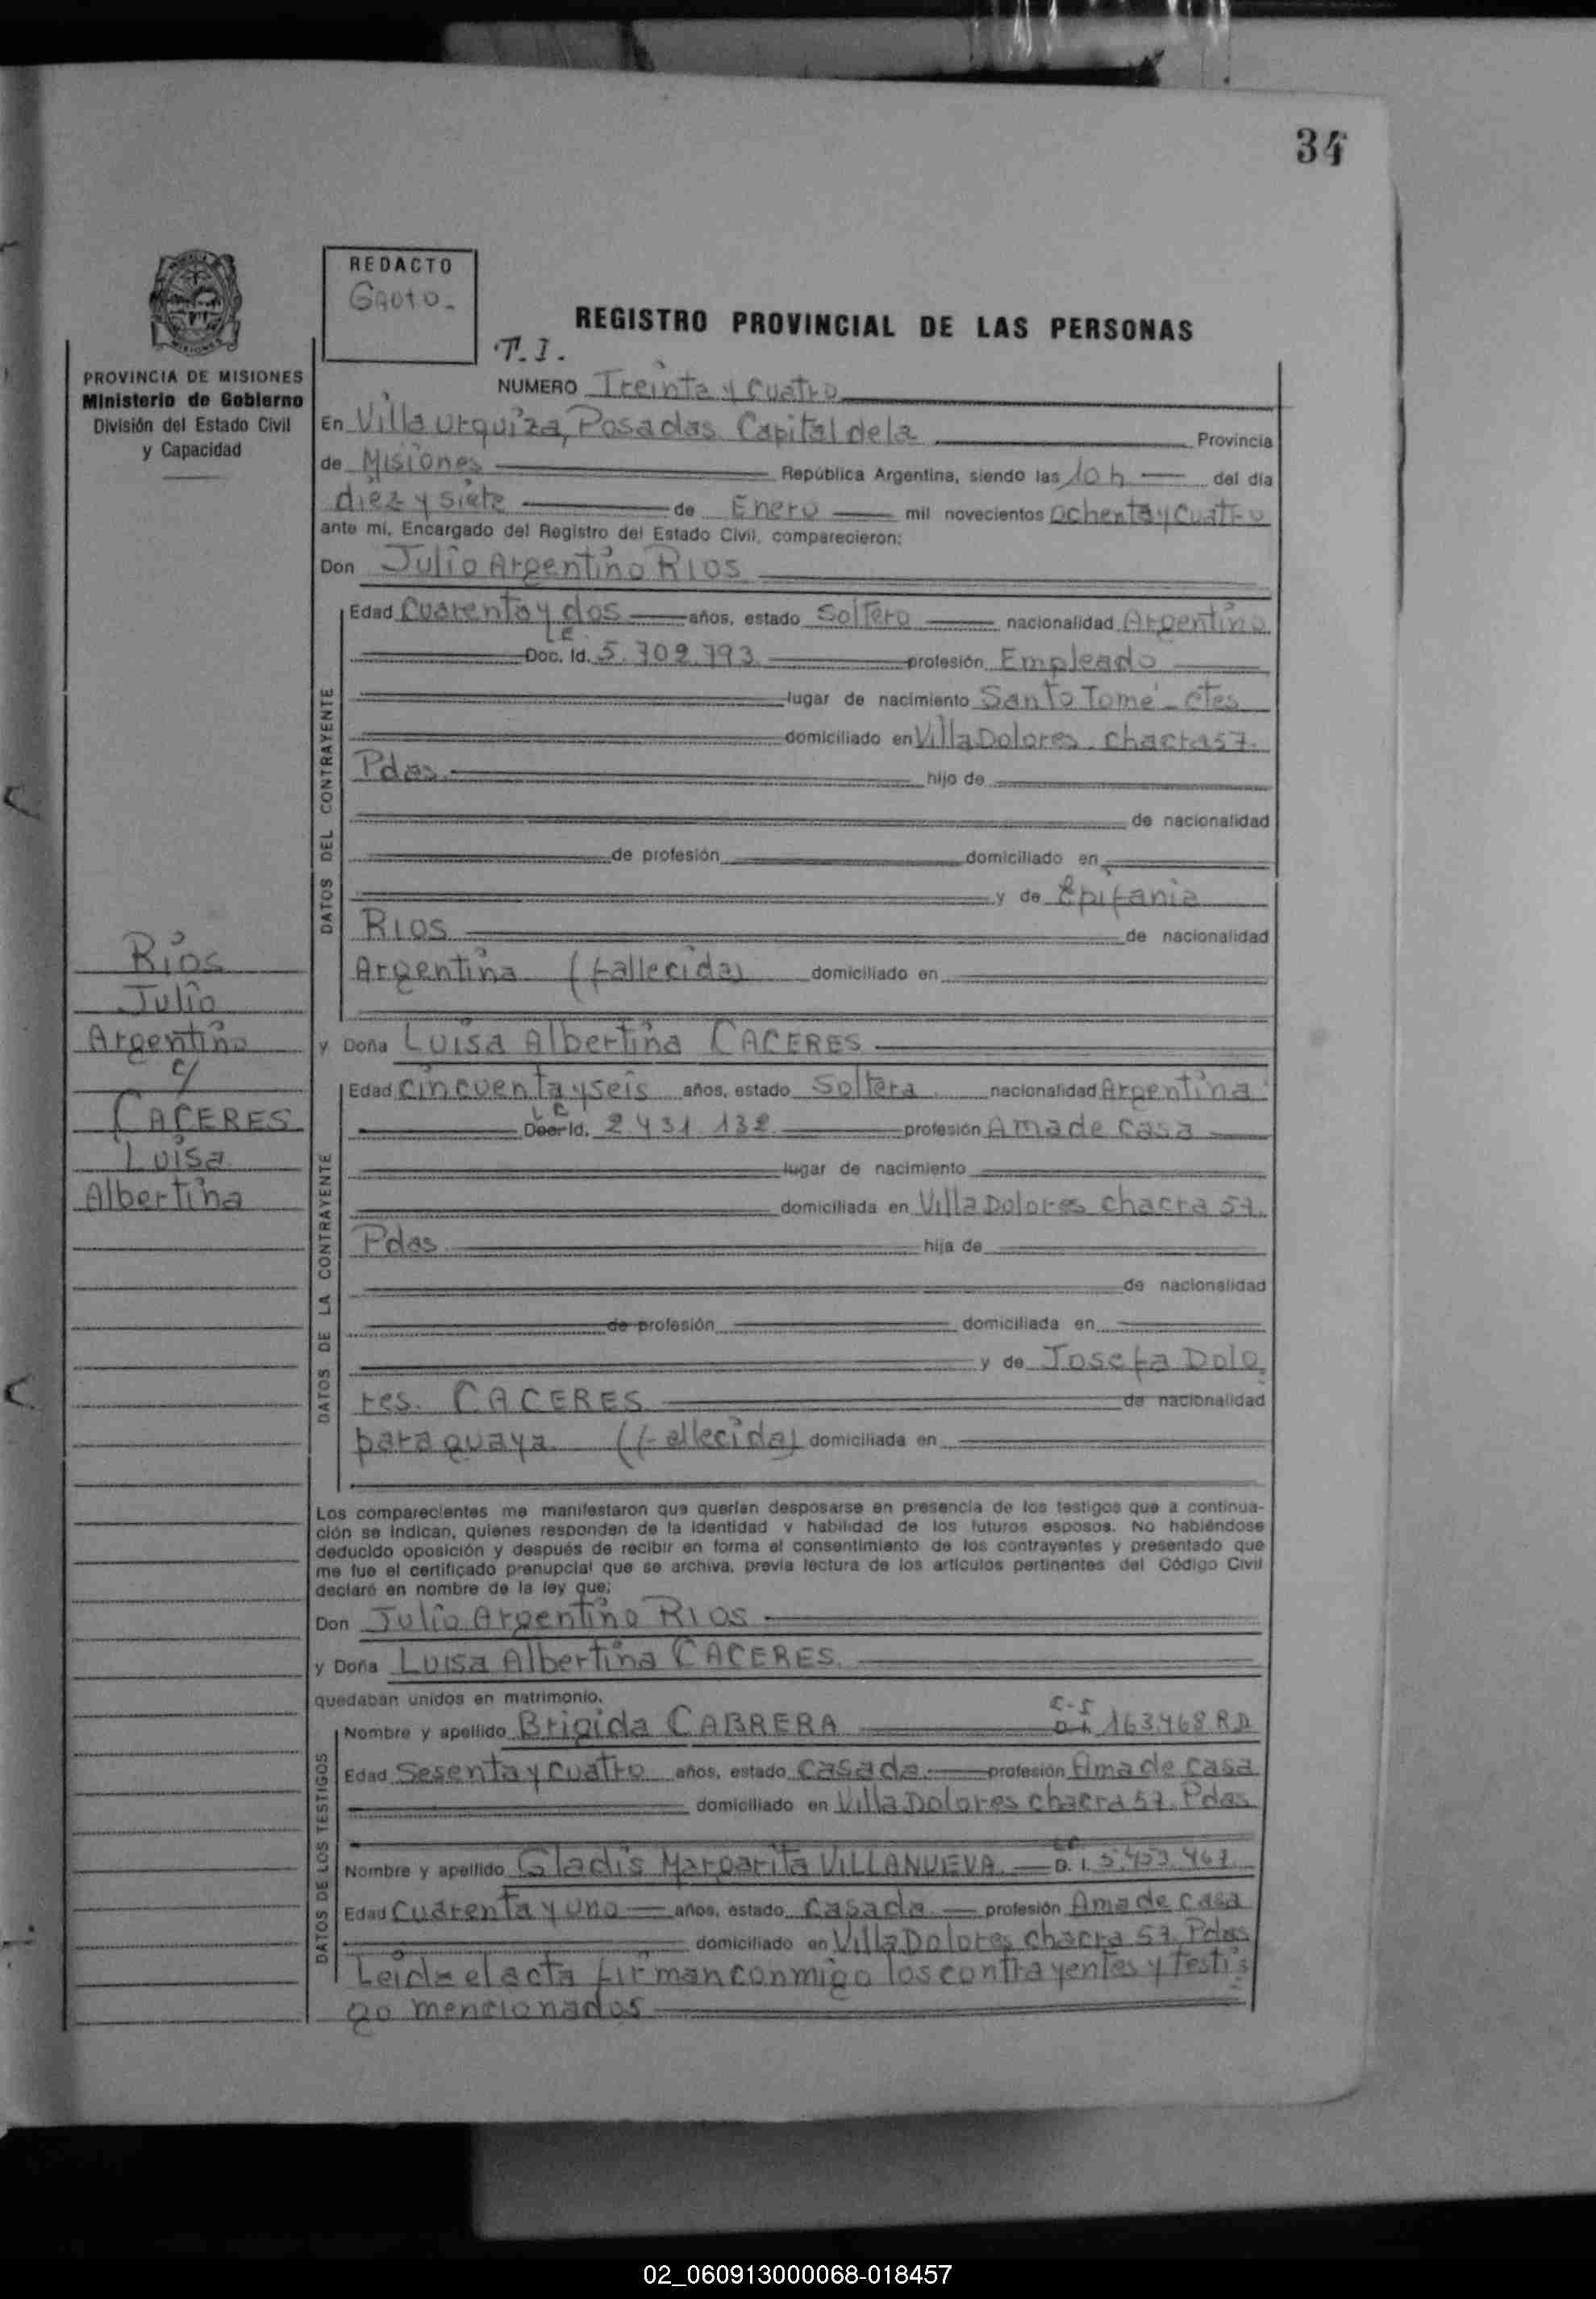 34
REDACTO
Gauto.-
REGISTRO PROVINCIAL DE LAS PERSONAS
T. I.
PROVINCIA DE MISIONES
Ministerio de Gobierno
División del Estado Civil
y Capacidad
NUMERO Treinta y cuatro
En Villa Urquiza, Posadas Capital de la Provincia
de Misiones República Argentina, siendo las 10 h del día
diez y siete de Enero mil novecientos ochenta y cuatro
ante mí, Encargado del Registro del Estado Civil, comparecieron:
Don Julio Argentino RIOS
DATOS DEL CONTRAYENTE
Edad Cuarenta y dos años, estado Soltero nacionalidad Argentino
L E
Doc. Id. 5.709.793 profesión Empleado
lugar de nacimiento Santo Tomé - ctes
domiciliado en Villa Dolores chacra 57.
Pdas. hijo de
de nacionalidad
de profesión domiciliado en
y de Epifania
RIOS de nacionalidad
Argentina (fallecida) domiciliado en
Rios
Julio
Argentino
c/
CACERES
Luisa
Albertina
y Doña Luisa Albertina CACERES
DATOS DE LA CONTRAYENTE
Edad cincuenta y seis años, estado Soltera nacionalidad Argentina
L E
Doc. Id. 2.431.132 profesión Ama de casa
lugar de nacimiento
domiciliada en Villa Dolores chacra 57.
Pdas hija de
de nacionalidad
de profesión domiciliada en
y de Josefa Dolo
res. CACERES de nacionalidad
paraguaya (fallecida) domiciliada en
Los comparecientes me manifestaron que querían desposarse en presencia de los testigos que a continua-
ción se indican, quienes responden de la identidad y habilidad de los futuros esposos. No habiéndose
deducido oposición y después de recibir en forma el consentimiento de los contrayentes y presentado que
me fue el certificado prenupcial que se archiva, previa lectura de los artículos pertinentes del Código Civil
declaré en nombre de la ley que:
Don Julio Argentino RIOS
y Doña Luisa Albertina CACERES.
quedaban unidos en matrimonio.
DATOS DE LOS TESTIGOS
Nombre y apellido Brigida CABRERA D. I. 163.468 R.D
Edad Sesenta y cuatro años, estado casada profesión Ama de casa
domiciliado en Villa Dolores chacra 57. Pdas
Nombre y apellido Gladis Margarita VILLANUEVA D. I. 5.453.467
Edad Cuarenta y uno años, estado casada profesión Ama de casa
domiciliado en Villa Dolores chacra 57. Pdas
Leida el acta firman conmigo los contrayentes y testi
go mencionados
02_060913000068-018457